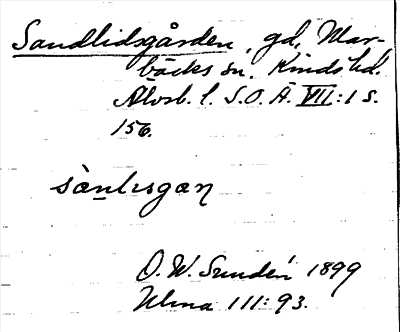 Sandlidsgården, gd, Mar-
bäcks sn. Kinds hd.
Älvsb. l. S.O.Ä. VII:1 s.
156.
sànlɩsgan
D. W. Sundén 1899
Ulma 111:93.